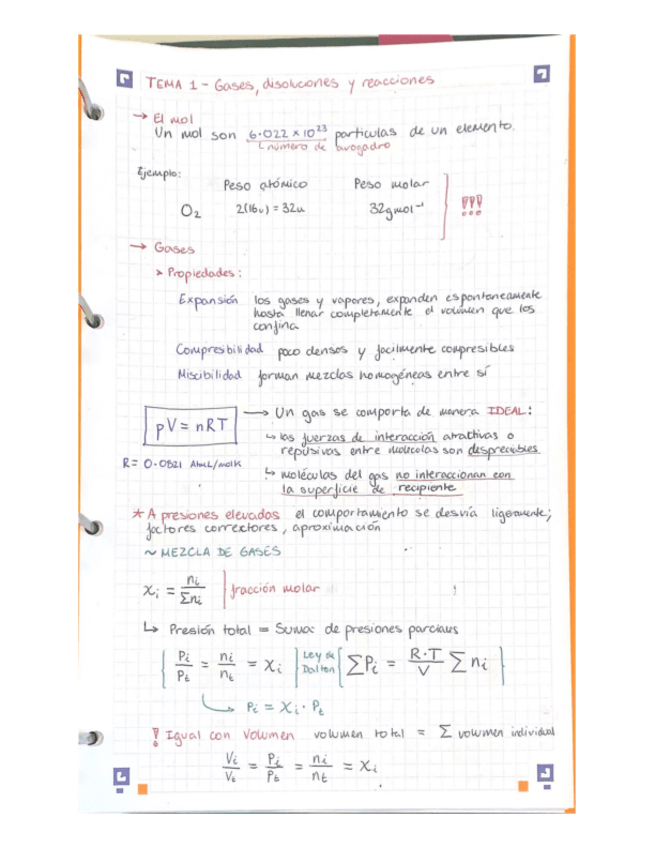 TEMA 1 - Gases, disoluciones y reacciones
→ El mol
Un mol son 6.022 × 10²³ partículas de un elemento.
número de avogadro
Ejemplo:
Peso atómico Peso molar
O₂ 2(16u) = 32u 32gmol⁻¹ !!!
→ Gases
➤ Propiedades:
Expansión los gases y vapores, expanden espontaneamente
hasta llenar completamente el volumen que los
confina
Compresibilidad poco densos y facilmente compresibles
Miscibilidad forman mezclas homogéneas entre sí
pV = nRT → Un gas se comporta de manera IDEAL:
↳ las fuerzas de interacción atractivas o
repulsivas entre moléculas son despreciables
R = 0.0821 AtmL/molK
↳ moléculas del gas no interaccionan con
la superficie de recipiente
* A presiones elevadas el comportamiento se desvía ligeramente;
factores correctores, aproximación
~ MEZCLA DE GASES
χᵢ = nᵢ/Σnᵢ | fracción molar
↳ Presión total = Suma de presiones parciales
Pᵢ/Pₜ = nᵢ/nₜ = χᵢ | Ley de Dalton ΣPᵢ = R·T/V Σ nᵢ
Pᵢ = χᵢ · Pₜ
! Igual con Volumen volumen total = Σ volumen individual
Vᵢ/Vₜ = Pᵢ/Pₜ = nᵢ/nₜ = χᵢ